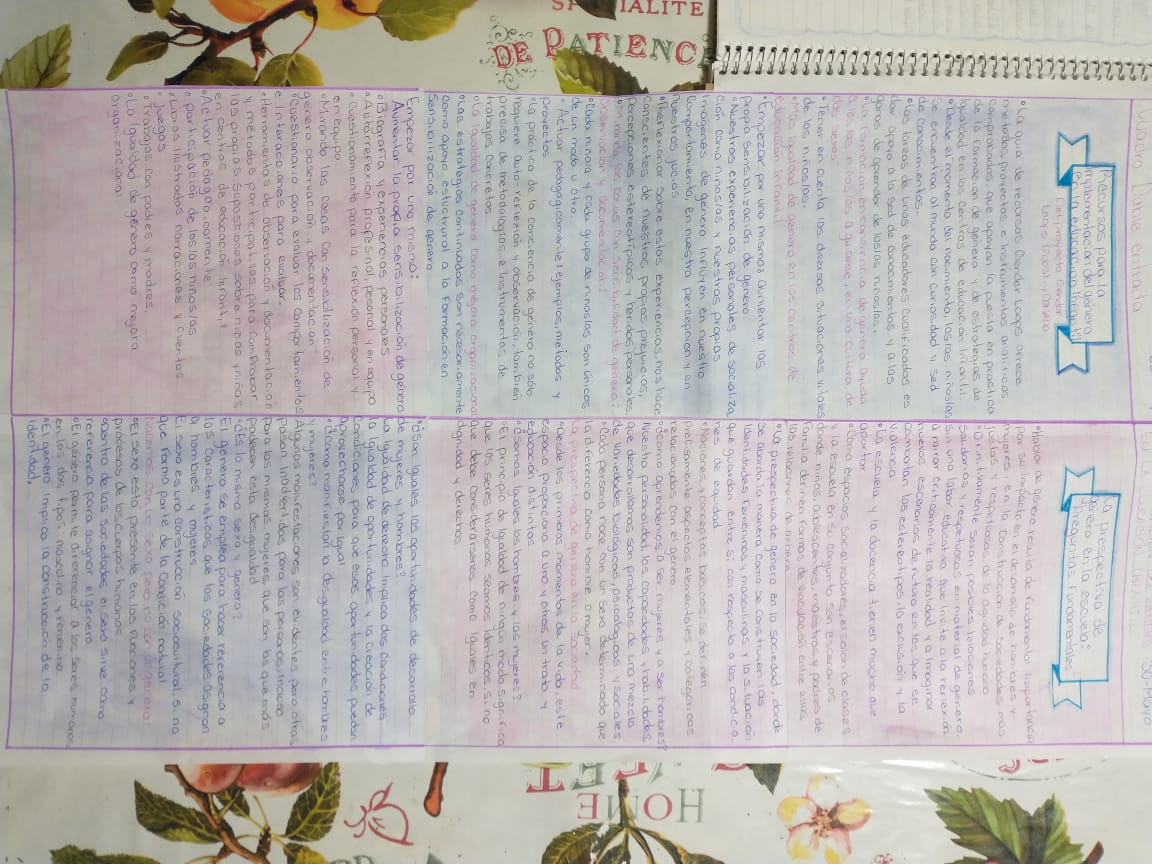 Cuadro Doble entrada
Recursos para la
implementación del género
en la educación infantil
Del proyecto Gender
Loops
°La guía de recursos Gender Loops ofrece
métodos, proyectos e instrumentos analíticos
comprobados, que apoyan la puesta en practica
de la formación de género y de estrategias de
igualdad en los centros de educación infantil.
°Desde el momento del nacimiento, las/os niños/as
se encuentran al mundo con curiosidad y sed
de conocimientos.
°Las tareas de unos educadores cualificados es
dar apoyo a la sed de conocimientos y a las
ganas de aprender de las/os niños/as.
°La formación en conciencia de género ayuda
a las/os niños/as a guiarse, en una cultura de
dos sexos
°Tener en cuenta las diversas situaciones vitales
de los niños/as.
°Más igualdad de género en los centros de
educación infantil
°Empezar por uno mismo: aumentar las
propia sensibilización de genero
°Nuestras experiencias personales de socializa
ción como niños/as y nuestras propias
imágenes de género influyen en nuestro
comportamiento, en nuestra percepción y en
nuestros juicios
°Reflexionar sobre estas experiencias, nos hace
conscientes de nuestros propios prejuicios,
percepciones estereotipicas y sendos personales
°Mirando las cosas con sensibilidad de género:
Observación y documentación:
°Cada niña y cada grupo de niños/as son únicos
de un modo u otro.
°Actuar pedagógicamente: ejemplos, métodos y
proyectos
°La práctica de la conciencia de género no sólo
requiere auto-reflexión y observación, también
precisa de metodologías e instrumentos de
trabajos concretos.
°La igualdad de género como mejora organizacional
°Las estrategias continuadas son necesariamente
como apoyo estructural a la formación en
sensibilización de género
Empezar por uno mismo:
Aumentar la propia sensibilización de género
°Biografía y experiencias personales
°Autorreflexión profesional, personal y en equipo
°Cuestionamiento para la reflexión personal y
en equipo
°Mirando las cosas con sensibilización de
género: observación y documentación
°Cuestionario para evaluar los comportamientos
e interacciones para evaluar.
°Herramientas de observación y documentación
y método participativas para comprobar
las propias suposiciones sobre niñas y niños
en centros de educación infantil
°Actuar pedagógicamente
°participación de las/os niños/as
°Libros ilustrados narraciones y cuentos
°Juegos
°Trabajos con padres y madres.
°La igualdad de género como mejora
organizacional
30-Mayo
La prespectiva de
género en la escuela:
preguntas fundamentales
°Hablar de género resulta de fundamental importancia
por su impacto en el desarrollo de hombres y
mujeres y en la construcción de sociedades más
justas y respetuosas de la dignidad humana
°Difinitivamente serán posibles relaciones
saludables y respetuosas en material de género,
sin una labor educativa que invite a la reflexión
a mirar críticamente la realidad y a imaginar
nuevos escenarios de futuro en los que se
combatan los estereotipos, la exclusión y la
violencia
°La escuela y la docencia tienen mucho que
aportar
°Como espacios socializadores, el salón de clases
y la escuela en su conjunto son escenarios
donde niños, adolescentes, maestros y padres de
familia definen formas de vinculación entre ellos,
las relaciones de género
°La prespectiva de género en la sociedad donde
se aborda la manera como se construyen las
identidades femeninas y masculinas y la situación
que guardan entre sí con respecto a las condicio-
nes de equidad
°Nociones y conceptos básicos: se definen
precisamente aspectos elementales y categóricos
relacionados con el género
°¿Cómo aprendemos a ser mujeres y a ser hombres?
Nuestra personalidad, las capacidades y habilidades
que desarrollamos son productos de una mezcla
de variedades biológicas, psicológicas y sociales
°Cada persona nace con un sexo determinado que
la diferencia como hombre o mujer
La prespectiva de género en la sociedad
°Desde los primeros momentos de la vida, este
espacio proporciona a unos y otros un trato y
educación distintas.
°¿Somos iguales los hombres y las mujeres?
°El principio de igualdad de ningún modo significa
que los seres humanos seamos idénticos, sino
que debe considerársenos como iguales en
dignidad y derechos.
°¿Son iguales las oportunidades de desarrollo
de mujeres y hombres?
La igualdad de derecho implica dos condiciones
la igualdad de oportunidades y la creación de
condiciones para que esas oportunidades puedan
aprovecharse por igual
°¿Cómo manifiesta la desigualdad entre hombres
y mujeres?
Algunas manifestaciones son evidentes pero otras
pasan inadvertidas para las personas, incluso
para las mismas mujeres, que son las que más
padecen esta desigualdad
°¿Es lo mismo sexo y género?
El género se emplea para hacer referencia a
las características que las sociedades asignan
a hombres y mujeres
El sexo es una construcción sociocultural, sino
que forma parte de la condición natural
Nacemos con un sexo pero no con un género:
°El sexo está presente en las funciones y
procesos de los cuerpos humanos
°dentro de las sociedades el sexo sirve como
referencia para asignar el género
°El género permite diferenciar a los seres humanos
en los dos tipos, masculino y femenino
°El género implica la construcción de la
identidad.
SPECIALITE
DE PATIENC
SWEET
HOME